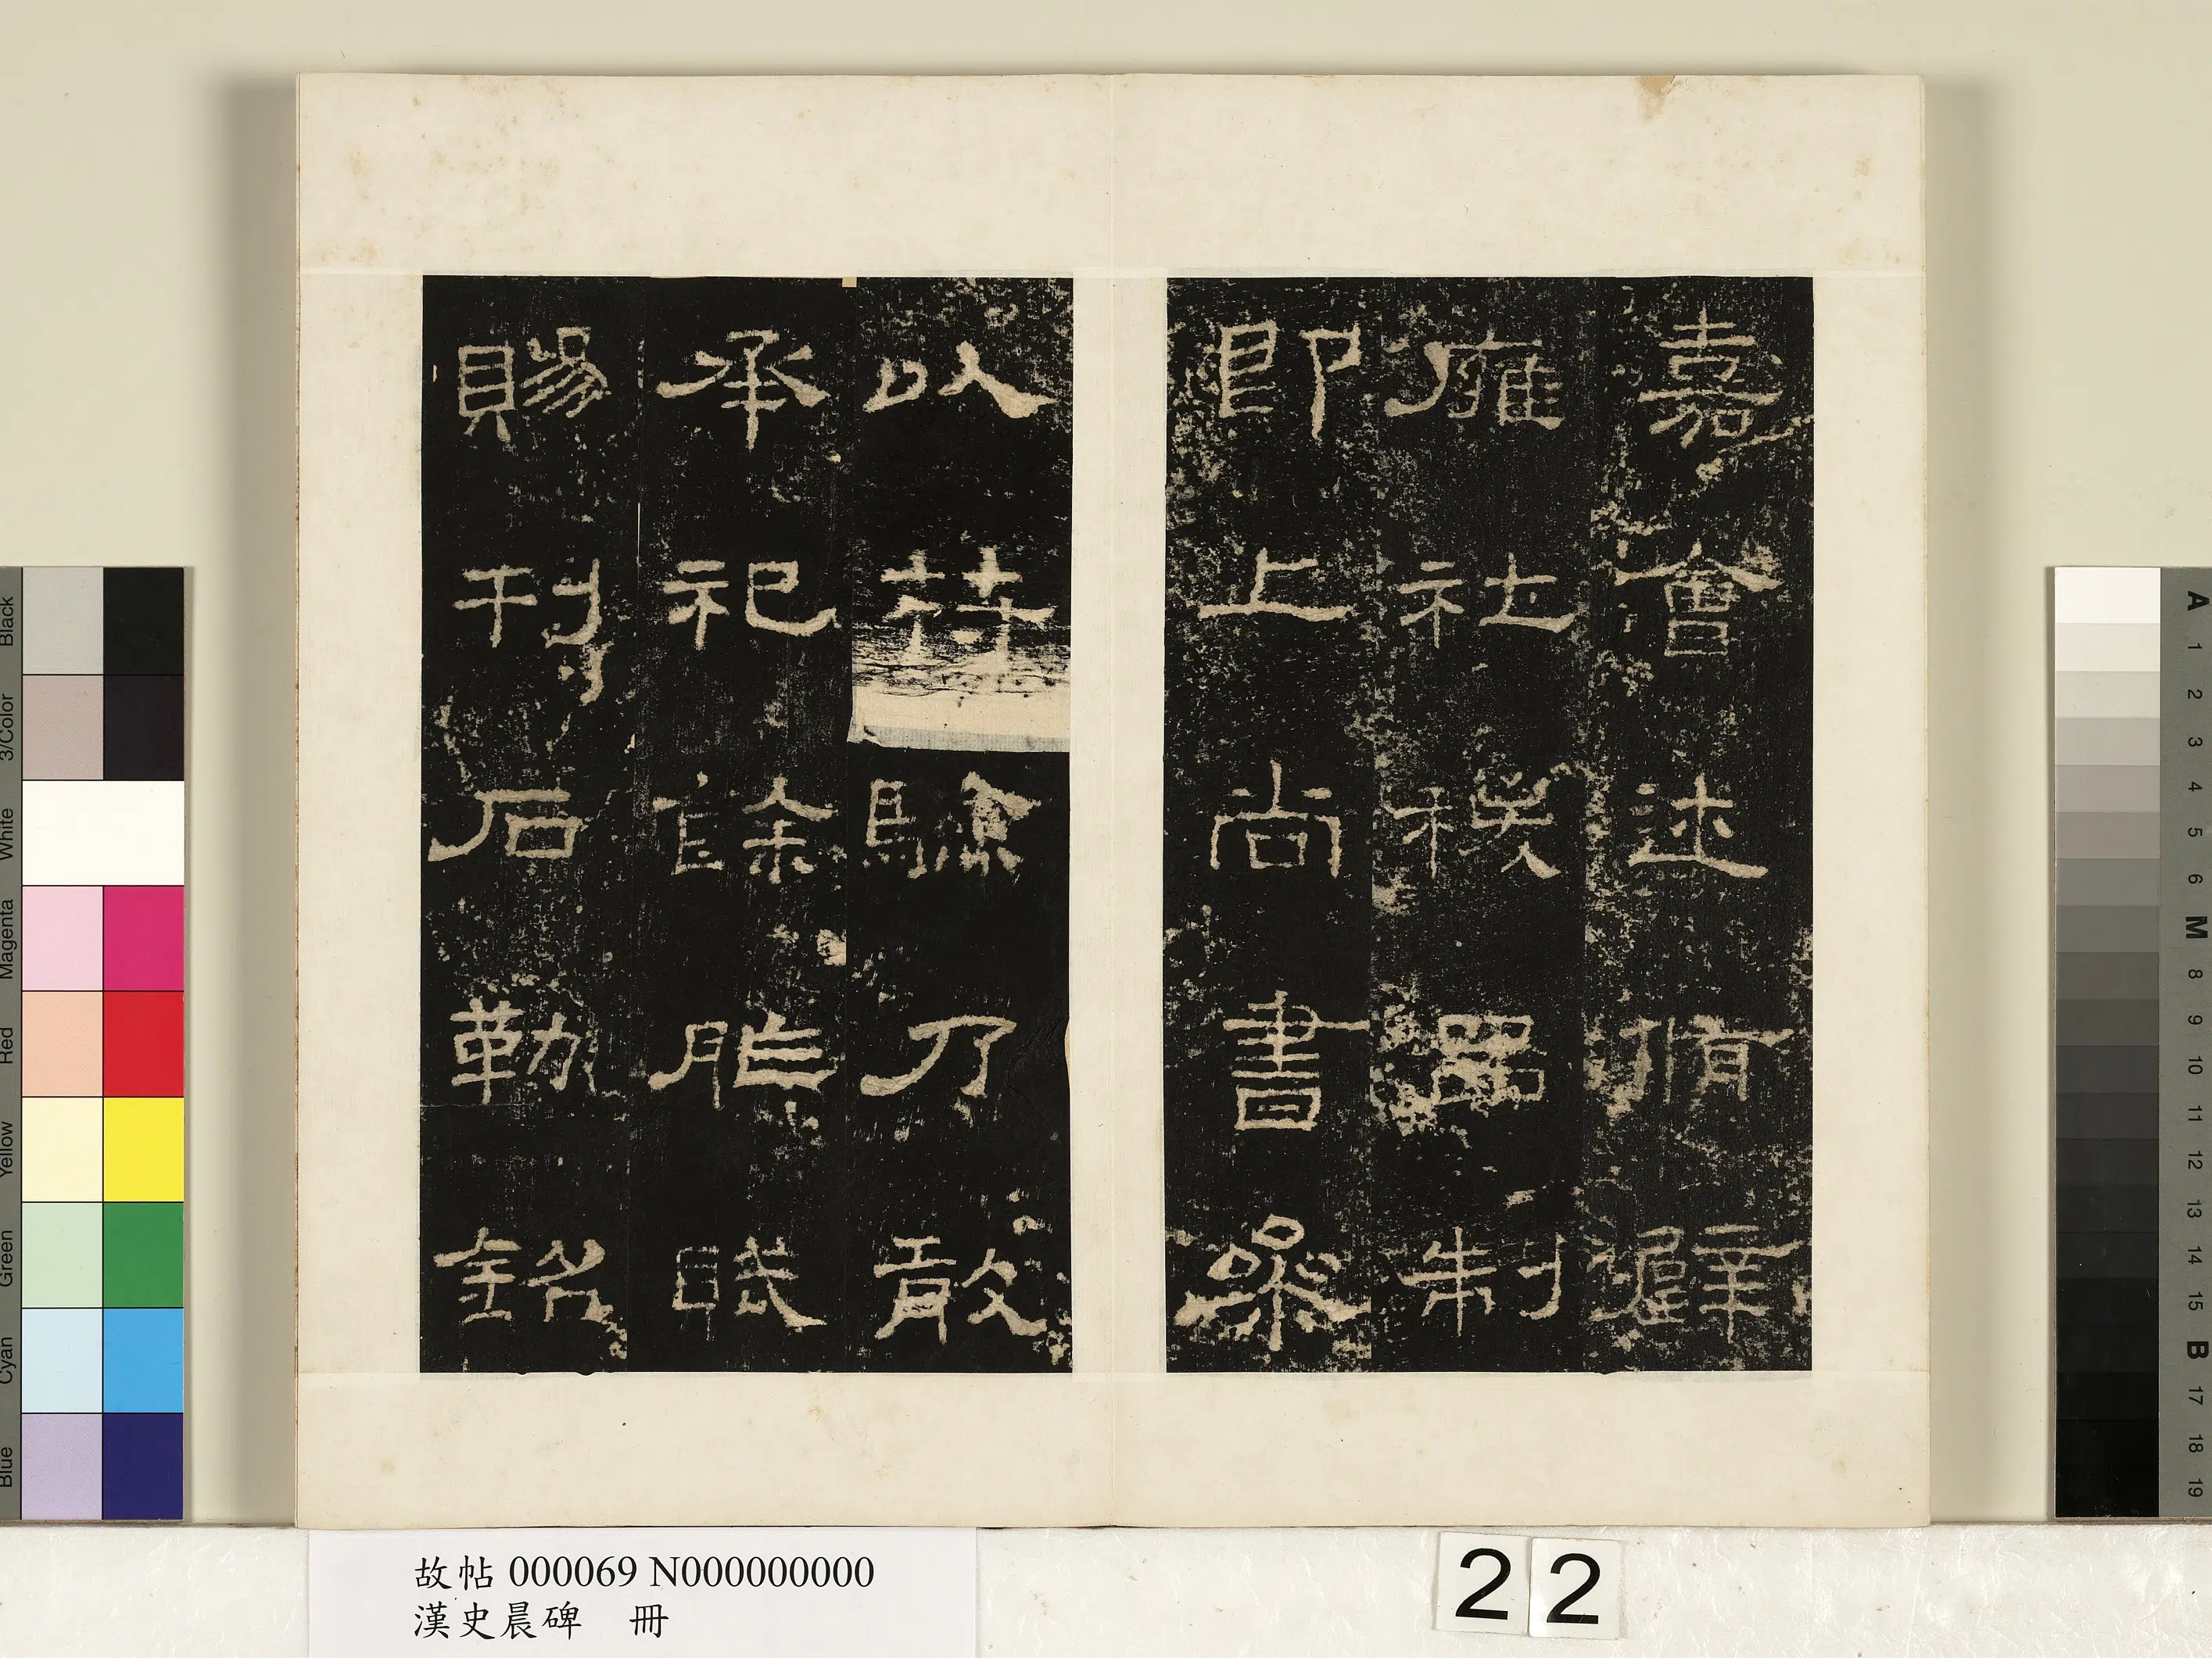 嘉會述脩璧
雍社稷品制
即上尚書參
以符驗乃敢
承祀餘胙賦
賜刊石勒銘
故帖 000069 N000000000
漢史晨碑 冊
22
Black
3/Color
White
Magenta
Red
Yellow
Green
Cyan
Blue
A 1 2 3 4 5 6 M 8 9 10 11 12 13 14 15 B 17 18 19